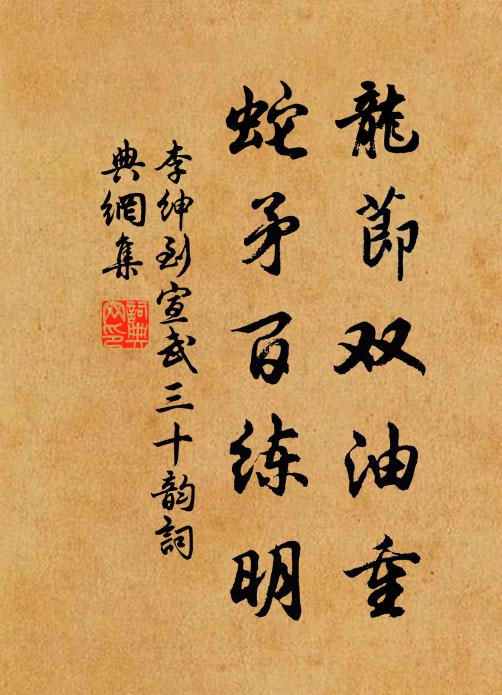 龍節双油重
蛇矛百练明
李绅到宣武三十韵詞
典網集
詞典网印